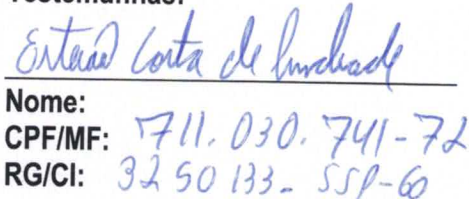 Testemunhas:
Costa de Andrade
Nome:
CPF/MF: 711.030.741-72
RG/CI: 3250133- SSP-GO